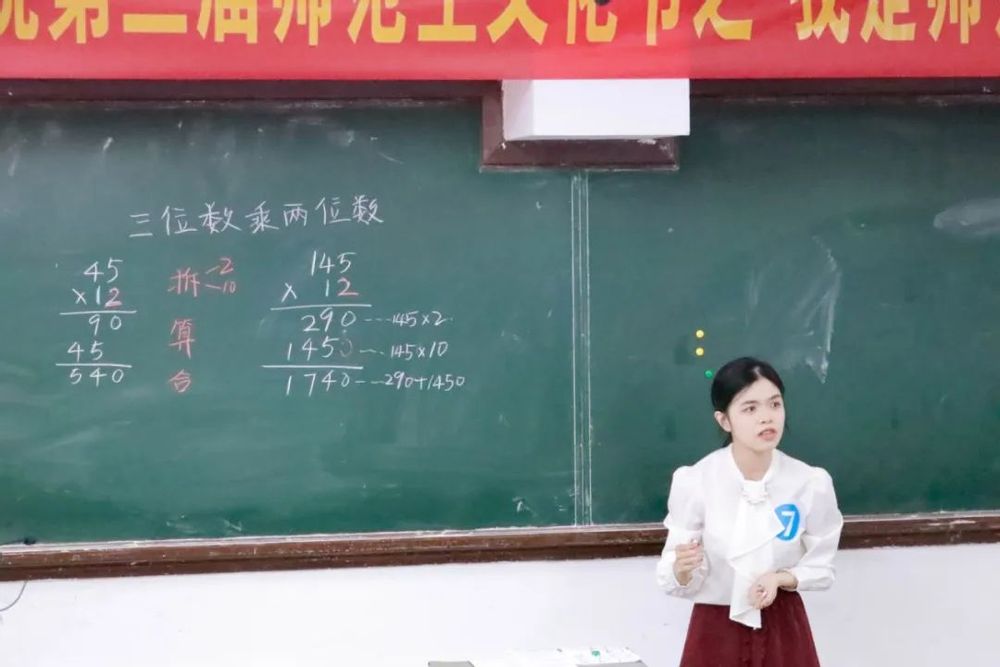 第二届师范生文化节之 我是师
三位数乘两位数
45
×12
90
45
540
拆 2
10
算
合
145
× 12
290 ---- 145×2
1450 --- 145×10
1740 --- 290+1450
7